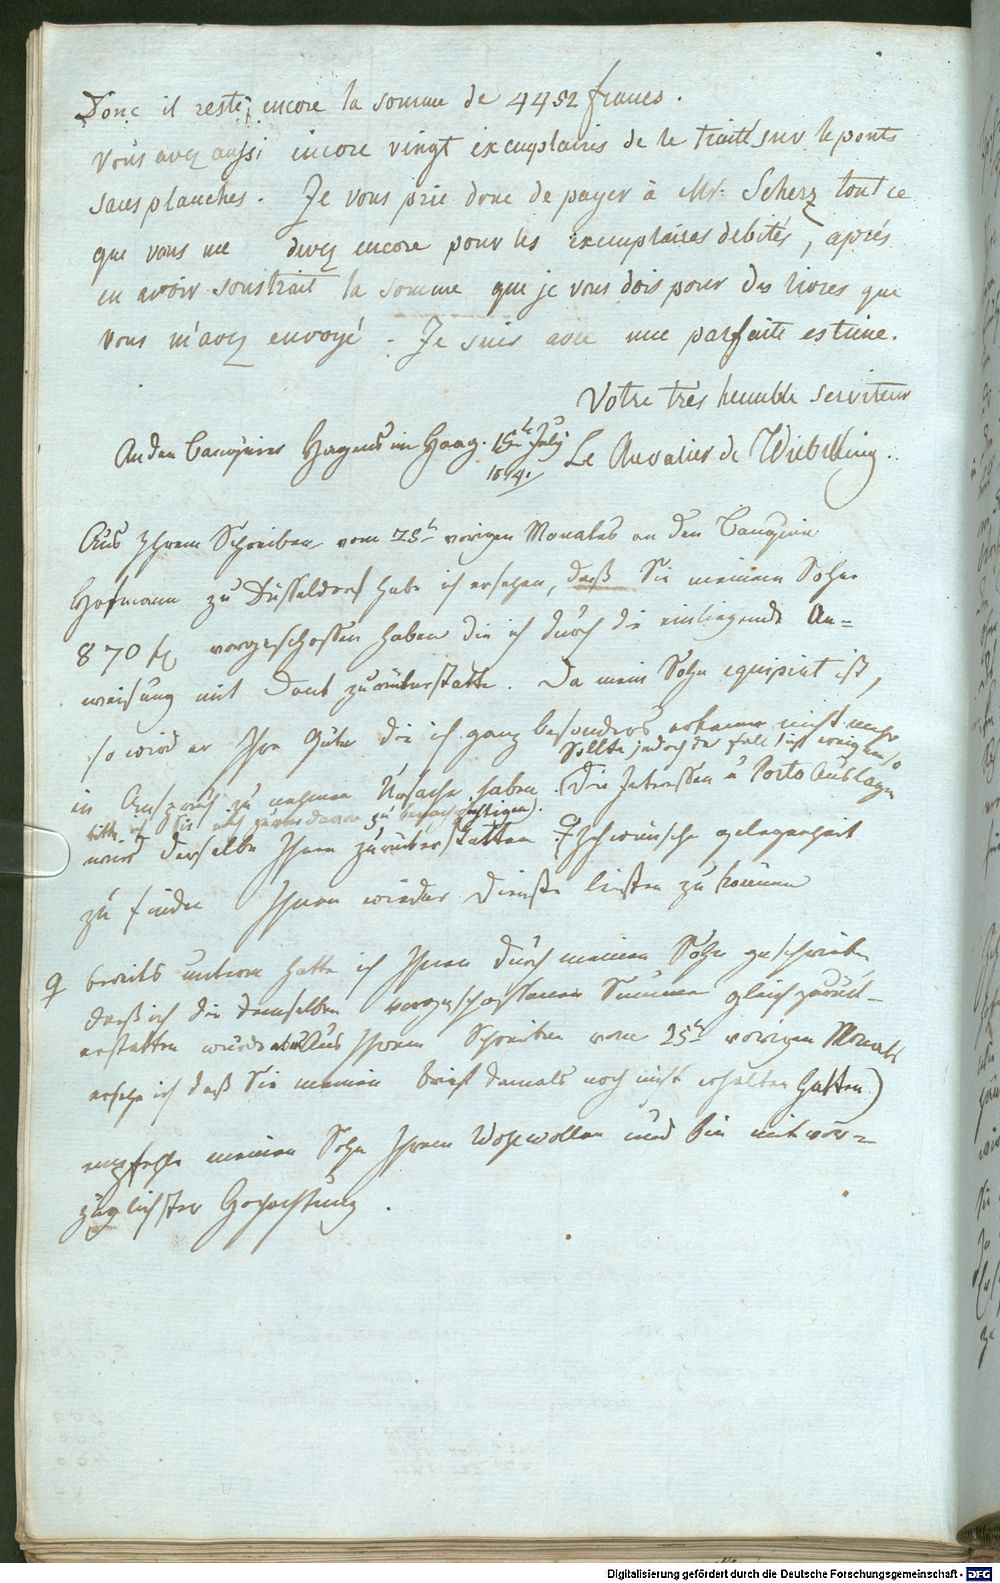 Donc il reste encore la somme de 4452 francs.
Vous avez aussi encore vingt exemplaires de le traité sur le ponts
sans planches. Je vous prie donc de payer à Mr: Scherz tout ce
que vous me devez encore pour les exemplaires debités, aprés
en avoir soustrait la somme que je vous dois pour des livres que
vous m'avez envoyé. Je suis avec une parfaite estime.
Votre trés humble serviteur
Le Chevalier de Wiebeking.
An den Banquier Hagens im Haag. 15t July
Aus Ihrem Schreiben vom 25t vorigen Monates an den Banquier
Hofmann zu Düsseldorf habe ich ersehen, daß Sie meinem Sohne
870 vorgeschossen haben die ich durch die einliegende An=
weisung mit Dank zurückerstatte. Da mein Sohn equipirt ist,
so wird er Ihre Güte die ich ganz besonders erkenne nicht mehr
Sollte jedoch der Fall sich ereignen so
in Anspruch zu nehmen Ursache haben. (Die Interessen u Porto Auslagen
bitte ich Sie mich davon zu benachrichtigen).
wird derselbe Ihnen zurückerstatten. Ich wünsche gelegenheit
zu finden Ihnen wieder Dienste leisten zu können
bereits unterm hatte ich Ihnen durch meinen Sohn geschrieben
daß ich die demselben vorgeschossene Summe gleich zurück-
erstatten würde Aus Ihrem Schreiben vom 25t vorigen Monats
ersehe ich daß Sie meinen Brief damals noch nicht erhalten hatten.)
empfehle meinen Sohn Ihrem Wohlwollen und bin mit vor=
züglichster Hochachtung.
Digitalisierung gefördert durch die Deutsche Forschungsgemeinschaft - DFG